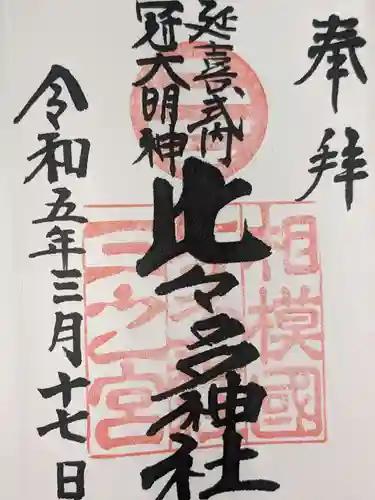 奉拝
延喜式内
冠大明神
比々多神社
令和五年三月十七日
相模國
三之宮